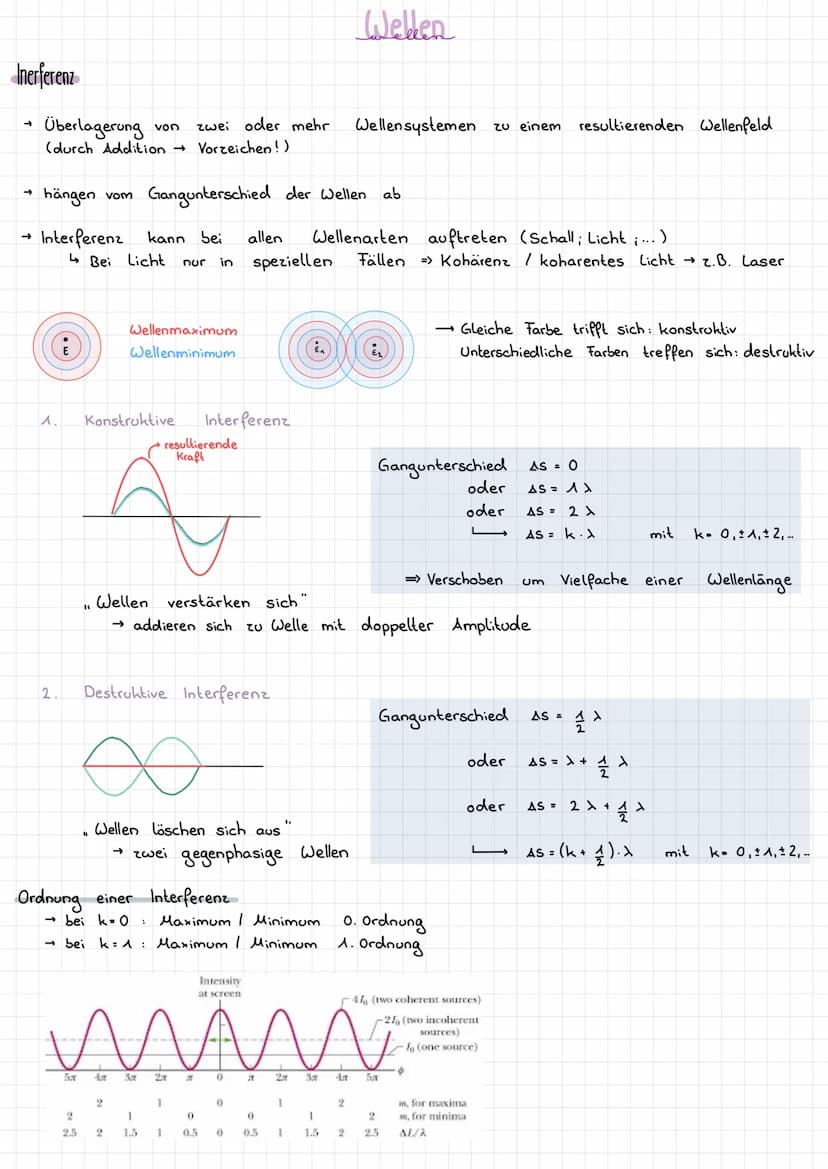 Wellen
Inerferenz
→ Überlagerung von zwei oder mehr Wellensystemen zu einem resultierenden Wellenfeld
(durch Addition → Vorzeichen!)
→ hängen vom Gangunterschied der Wellen ab
→ Interferenz kann bei allen Wellenarten auftreten (Schall; Licht ;...)
↳ Bei Licht nur in speziellen Fällen => Kohärenz / koharentes Licht → z.B. Laser
Wellenmaximum
Wellenminimum
E
E₁ E₂
→ Gleiche Farbe trifft sich: konstruktiv
Unterschiedliche Farben treffen sich: destruktiv
1. Konstruktive Interferenz
resultierende
Kraft
Gangunterschied ΔS = 0
oder ΔS = 1 λ
oder ΔS = 2 λ
↳ ΔS = k · λ mit k = 0, ±1, ±2, ..
=> Verschoben um Vielfache einer Wellenlänge
„Wellen verstärken sich"
→ addieren sich zu Welle mit doppelter Amplitude
2. Destruktive Interferenz
Gangunterschied ΔS = 1/2 λ
oder ΔS = λ + 1/2 λ
oder ΔS = 2 λ + 1/2 λ
↳ ΔS = (k + 1/2) · λ mit k = 0, ±1, ±2, ..
„Wellen löschen sich aus"
→ zwei gegenphasige Wellen
Ordnung einer Interferenz
→ bei k = 0 : Maximum / Minimum 0. Ordnung
→ bei k = 1 : Maximum / Minimum 1. Ordnung
Intensity
at screen
4I₀ (two coherent sources)
2I₀ (two incoherent
sources)
I₀ (one source)
5π 4π 3π 2π π 0 π 2π 3π 4π 5π ϕ
2 1 0 1 2 m, for maxima
2 1 0 0 1 2 m, for minima
2.5 2 1.5 1 0.5 0 0.5 1 1.5 2 2.5 ΔL/λ